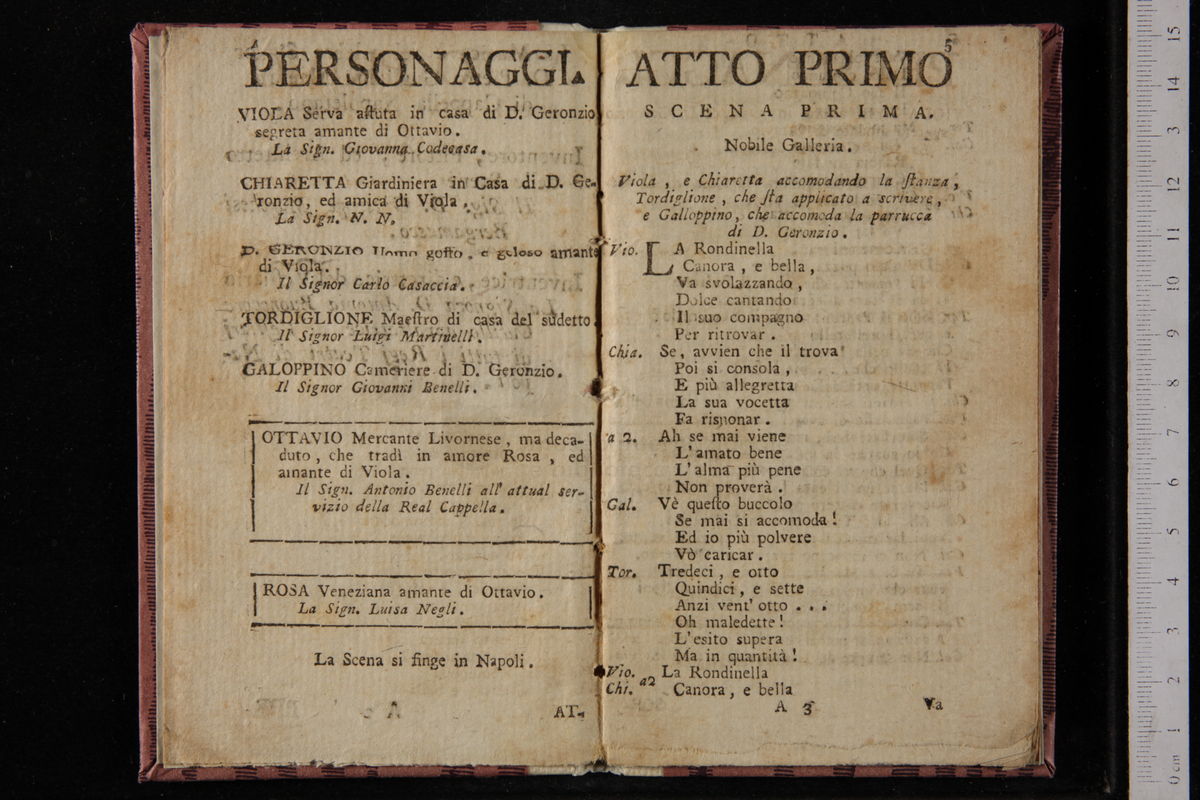 PERSONAGGI.
VIOLA Serva aſtuta in casa di D. Geronzio
segreta amante di Ottavio.
La Sign. Giovanna Codecasa.
CHIARETTA Giardiniera in Casa di D. Ge-
ronzio, ed amica di Viola.
La Sign. N. N.
D. GERONZIO Uomo goffo, e geloso amante
di Viola.
Il Signor Carlo Casaccia.
TORDIGLIONE Maeſtro di casa del sudetto
Il Signor Luigi Martinelli.
GALOPPINO Cameriere di D. Geronzio.
Il Signor Giovanni Benelli.
OTTAVIO Mercante Livornese, ma deca-
duto, che tradì in amore Rosa, ed
amante di Viola.
Il Sign. Antonio Benelli all' attual ser-
vizio della Real Cappella.
ROSA Veneziana amante di Ottavio.
La Sign. Luisa Negli.
La Scena si finge in Napoli.
AT-
5
ATTO PRIMO
SCENA PRIMA.
Nobile Galleria.
Viola, e Chiaretta accomodando la ſtanza,
Tordiglione, che ſta applicato a scrivere,
e Galloppino, che accomoda la parrucca
di D. Geronzio.
Vio. LA Rondinella
Canora, e bella,
Va svolazzando,
Dolce cantando
Il suo compagno
Per ritrovar.
Chia. Se, avvien che il trova
Poi si consola,
E più allegretta
La sua vocetta
Fa risuonar.
a 2. Ah se mai viene
L'amato bene
L'alma più pene
Non proverà.
Gal. Vè queſto buccolo
Se mai si accomoda!
Ed io più polvere
Vò caricar.
Tor. Tredeci, e otto
Quindici, e sette
Anzi vent' otto . . .
Oh maledette!
L'esito supera
Ma in quantità!
Vio. La Rondinella
Chi. a2 Canora, e bella
A 3 Va
15
14
13
12
11
10
9
8
7
6
5
4
3
2
1
0 cm